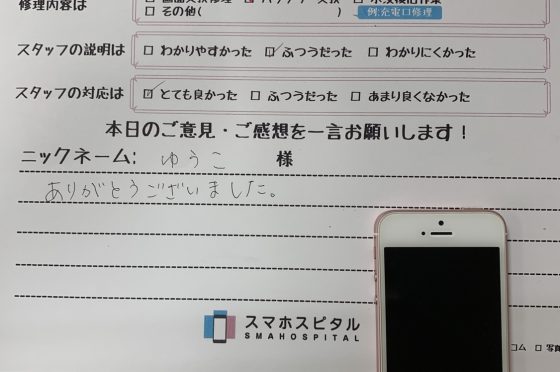 修理内容は
□ その他( ) 例:充電口修理
スタッフの説明は □ わかりやすかった ☑ ふつうだった □ わかりにくかった
スタッフの対応は ☑ とても良かった □ ふつうだった □ あまり良くなかった
本日のご意見・ご感想を一言お願いします!
ニックネーム: ゆうこ 様
ありがとうございました。
スマホスピタル
SMAHOSPITAL
コム □ 写真